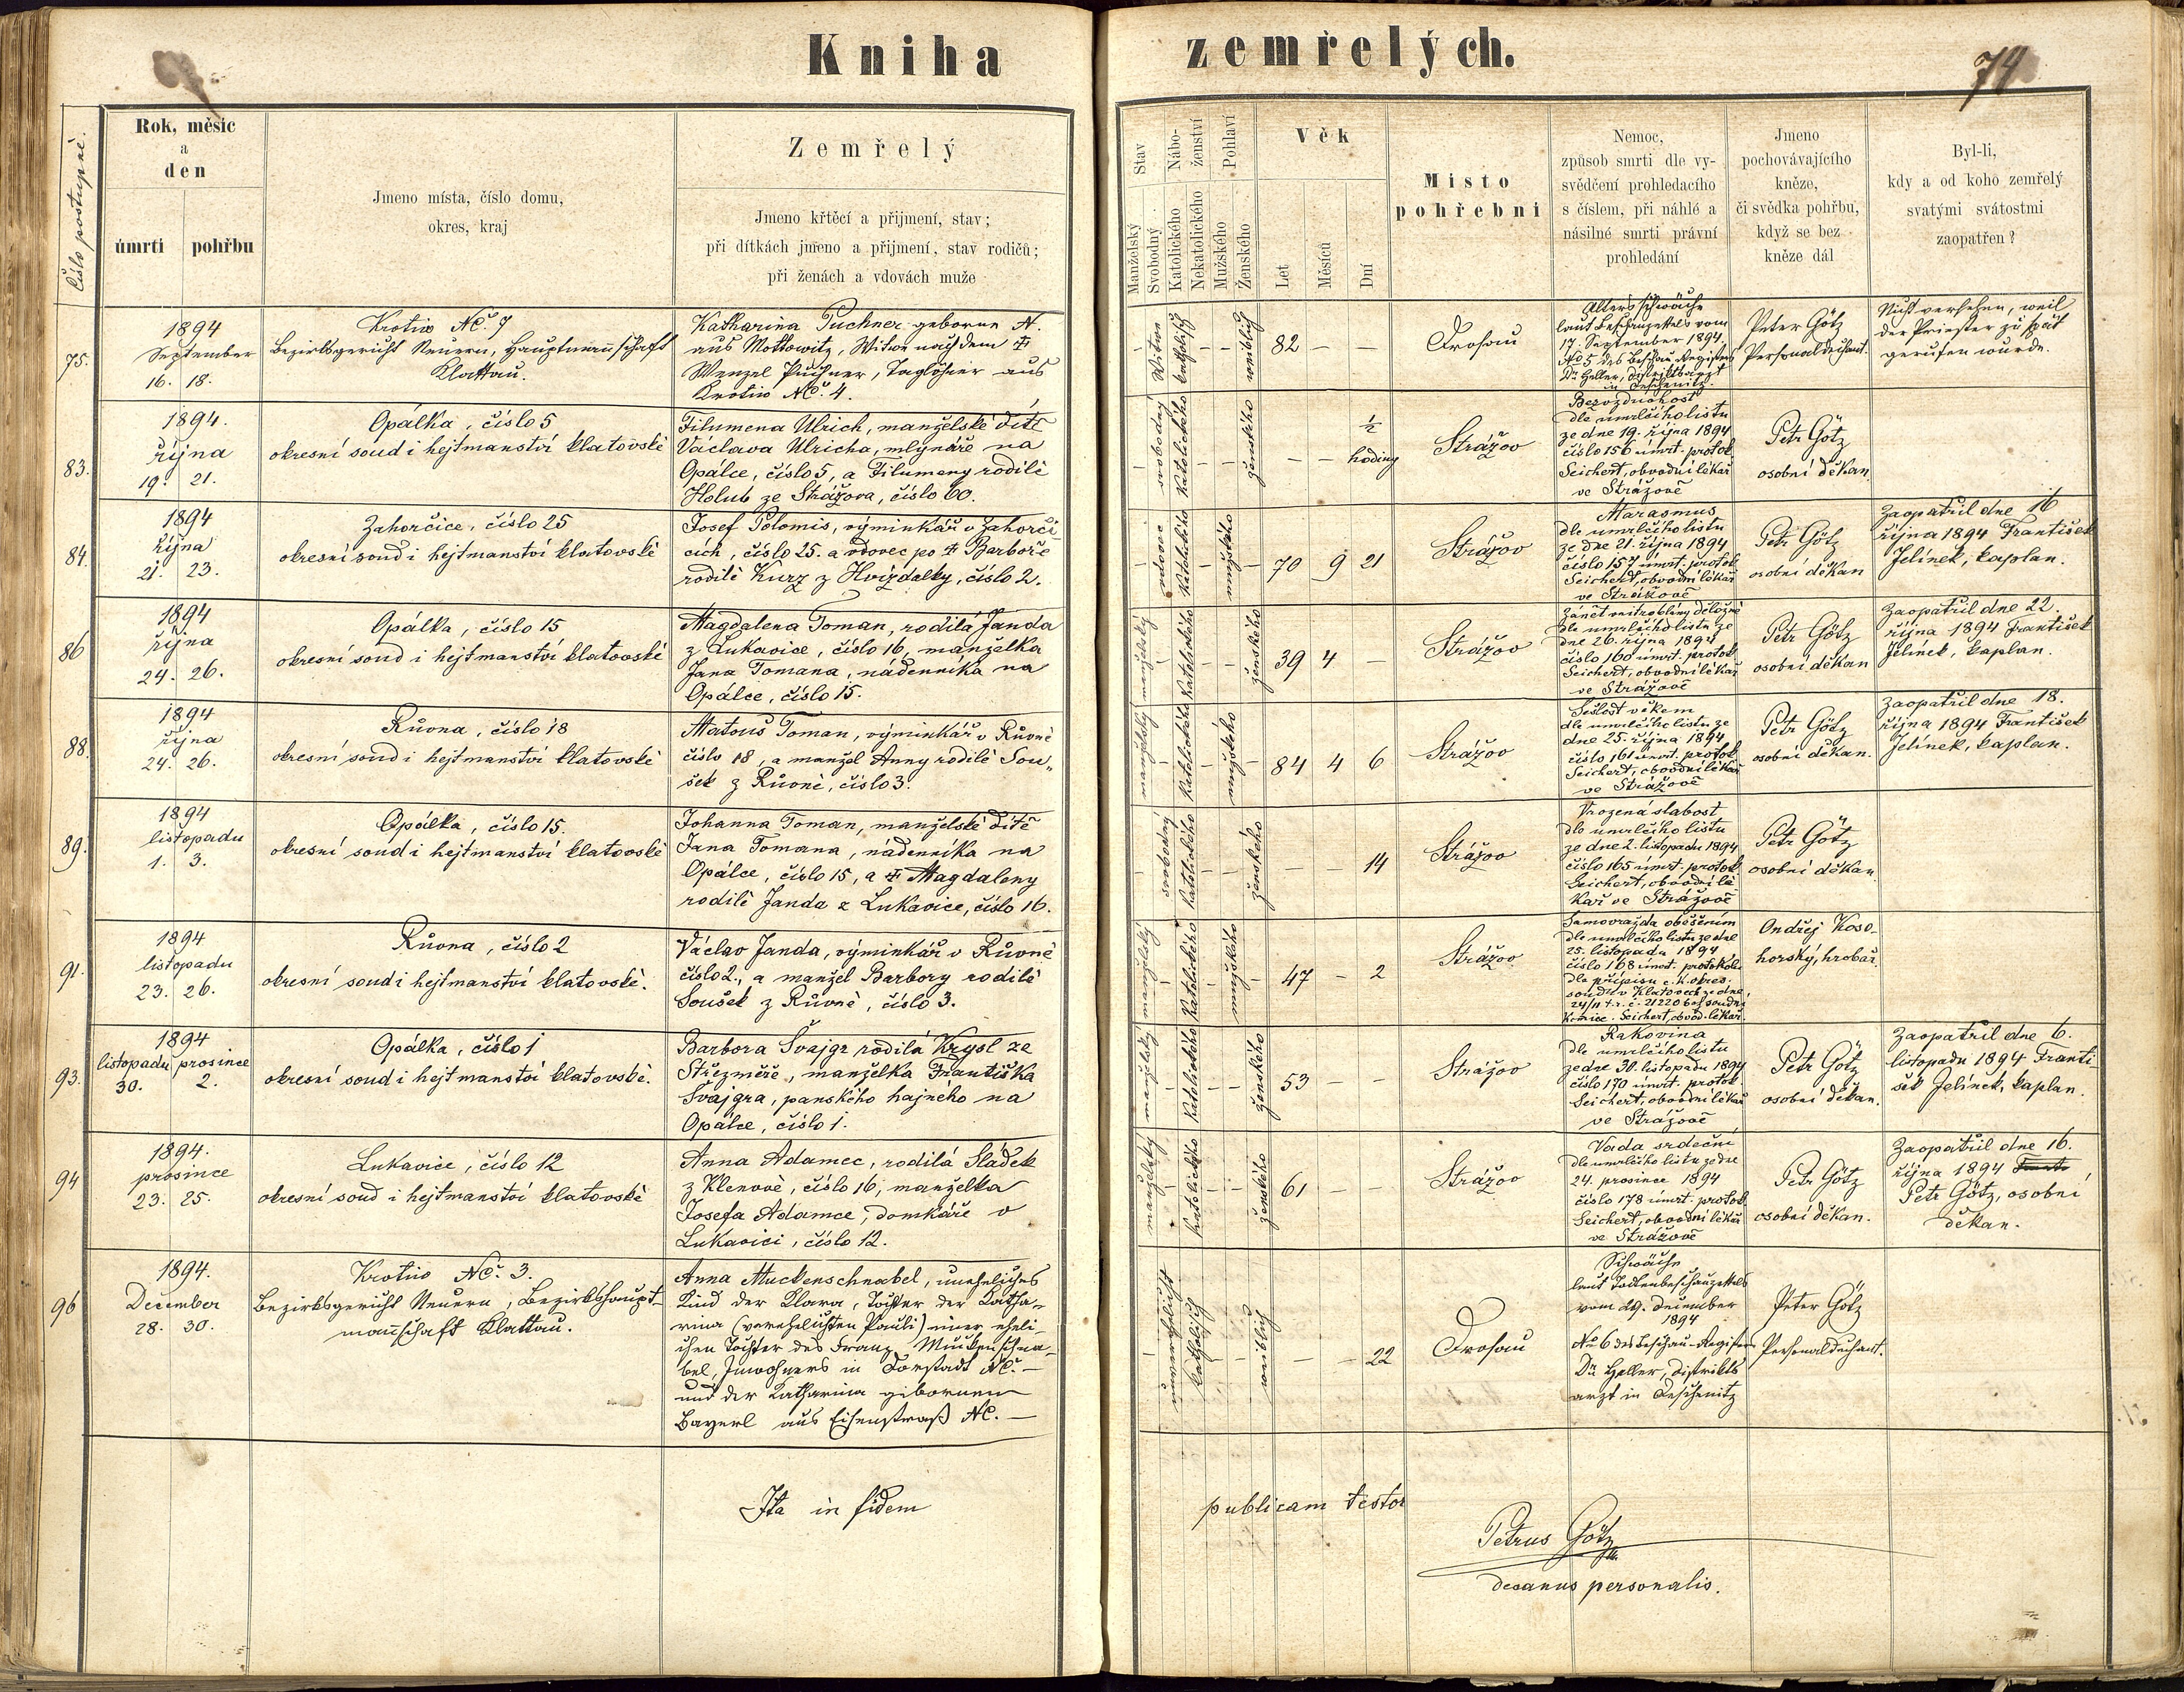 Kniha zemřelých.
74
Číslo postupné.
Rok, měsíc
a
den
úmrtí
pohřbu
Jmeno místa, číslo domu,
okres, kraj
Zemřelý
Jmeno křtěcí a přijmení, stav;
při dítkách jmeno a přijmení, stav rodičů;
při ženách a vdovách muže
Stav
Manželský
Svobodný
Nábo-
ženství
Katolického
Nekatolického
Pohlaví
Mužského
Ženského
Věk
Let
Měsíců
Dní
Místo
pohřební
Nemoc,
způsob smrti dle vy-
svědčení prohledacího
s číslem, při náhlé a
násilné smrti právní
prohledání
Jmeno
pochovávajícího
kněze,
či svědka pohřbu,
když se bez
kněze dál
Byl-li,
kdy a od koho zemřelý
svatými svátostmi
zaopatřen?
75.
1894
September
16. 18.
Krotiw NC. 7
Bezirksgericht Neuern, Hauptmannschaft
Klattau.
Katharina Puchner geborne N.
aus Mottowitz, Witwe nach dem †
Wenzel Puchner, Taglöhner aus
Krotiw NC. 4.
Witwe
katholisch
weiblich
82 – –
Drosau
Altersschwäche
laut Beschauzettels vom
17. September 1894
No 5 des Beschau-Registers
Dr. Heller, Distriktsarzt
in Deschenitz.
Peter Götz
Personaldechant.
Nicht versehen, weil
der Priester zu spät
gerufen wurde.
83.
1894.
října
19. 21.
Opálka, číslo 5
okresní soud i hejtmanství klatovské
Filumena Ulrich, manželské dítě
Václava Ulricha, mlynáře na
Opálce, číslo 5, a Filumeny rodilé
Holub ze Strážova, číslo 60.
svobodný
katolického
ženského
– – ½
hodiny
Strážov
Bezvzduchost
dle umrlčího listu
ze dne 19. října 1894
číslo 156 úmrt. protok.
Seichert, obvodní lékař
ve Strážově
Petr Götz
osobní děkan
84.
1894
října
21. 23.
Zahorčice, číslo 25
okresní soud i hejtmanství klatovské
Josef Polomis, výminkář v Zahorči-
cích, číslo 25. a vdovec po † Barboře
rodilé Kurz z Hvízdalky, číslo 2.
vdovec
katolického
mužského
70 9 21
Strážov
Marasmus
dle umrlčího listu
ze dne 21. října 1894
číslo 157 úmrt. protok.
Seichert, obvodní lékař
ve Strážově
Petr Götz
osobní děkan
Zaopatřil dne 16
října 1894 František
Jelínek, kaplan.
86
1894
října
24. 26.
Opálka, číslo 15
okresní soud i hejtmanství klatovské
Magdalena Toman, rodilá Janda
z Lukavice, číslo 16, manželka
Jana Tomana, nádenníka na
Opálce, číslo 15.
manželský
katolického
ženského
39 4 –
Strážov
Zánět mitroblány děložné
dle umrlčího listu ze
dne 26. října 1894
číslo 160 úmrt. protok.
Seichert, obvodní lékař
ve Strážově
Petr Götz
osobní děkan
Zaopatřil dne 22.
října 1894 František
Jelínek, kaplan.
88.
1894
října
24. 26.
Růvna, číslo 18
okresní soud i hejtmanství klatovské
Matouš Toman, výminkář v Růvně
číslo 18, a manžel Anny rodilé Sou-
šek z Růvně, číslo 3.
manželský
katolického
mužského
84 4 6
Strážov
Sešlost věkem
dle umrlčího listu ze
dne 25. října 1894
číslo 161 úmrt. protok.
Seichert, obvodní lékař
ve Strážově
Petr Götz
osobní děkan.
Zaopatřil dne 18.
října 1894 František
Jelínek, kaplan.
89.
1894
listopadu
1. 3.
Opálka, číslo 15.
okresní soud i hejtmanství klatovské
Johanna Toman, manželské dítě
Jana Tomana, nádenníka na
Opálce, číslo 15, a † Magdaleny
rodilé Janda z Lukavice, číslo 16.
svobodný
katolického
ženského
– – 14
Strážov
Vrozená slabost
dle umrlčího listu
ze dne 2. listopadu 1894
číslo 165 úmrt. protok.
Seichert, obvodní lé-
kař ve Strážově
Petr Götz
osobní děkan
91.
1894
listopadu
23. 26.
Růvna, číslo 2
okresní soud i hejtmanství klatovské.
Václav Janda, výminkář v Růvně
číslo 2, a manžel Barbory rodilé
Soušek z Růvně, číslo 3.
manželský
katolického
mužského
47 – 2
Strážov
Samovražda oběšením
dle umrlčího listu ze dne
25. listopadu 1894
číslo 168 úmrt. protokolu
dle přípisu c. k. okres.
soudu v Klatovech ze dne
24/11 t. r. č. 21220 bez soudní
komise. Seichert, obvod. lékař.
Ondřej Koso-
horský, hrobař.
93.
1894
listopadu prosince
30. 2.
Opálka, číslo 1
okresní soud i hejtmanství klatovské.
Barbora Švajgr rodilá Krysl ze
Střezměře, manželka Františka
Švajgra, panského hajného na
Opálce, číslo 1.
manželský
katolického
ženského
53 – –
Strážov
Rakovina
dle umrlčího listu
ze dne 30. listopadu 1894
číslo 170 úmrt. protok.
Seichert, obvodní lékař
ve Strážově
Petr Götz
osobní děkan.
Zaopatřil dne 6.
listopadu 1894 Franti-
šek Jelínek, kaplan.
94
1894.
prosince
23. 25.
Lukavice, číslo 12
okresní soud i hejtmanství klatovské
Anna Adamec, rodilá Sládek
z Klenové, číslo 16, manželka
Josefa Adamce, domkáře v
Lukavici, číslo 12.
manželský
katolického
ženského
61 – –
Strážov
Vada srdeční
dle umrlčího listu ze dne
24. prosince 1894
číslo 178 úmrt. protok.
Seichert, obvodní lékař
ve Strážově
Petr Götz
osobní děkan.
Zaopatřil dne 16.
října 1894
Petr Götz, osobní
děkan.
96
1894.
December
28. 30.
Krotiw NC. 3.
Bezirksgericht Neuern, Bezirkshaupt-
mannschaft Klattau.
Anna Muckenschnabel, uneheliches
Kind der Klara, Tochter der Katha-
rina (verehelichten Pauli) einer eheli-
chen Tochter des Franz Muckenschna-
bel, Inwohners in Dorstadt NC. –
und der Katharina gebornen
Bayerl aus Eisenstraß NC. –
unverehelicht
katholisch
weiblich
– – 22
Drosau
Schwäche
laut Todtenbeschauzettels
vom 29. December
1894
No 6 des Beschau-Registers
Dr. Heller, Distrikts
arzt in Deschenitz
Peter Götz
Personaldechant.
Ita in fidem publicam testor
Petrus Götz
decanus personalis.